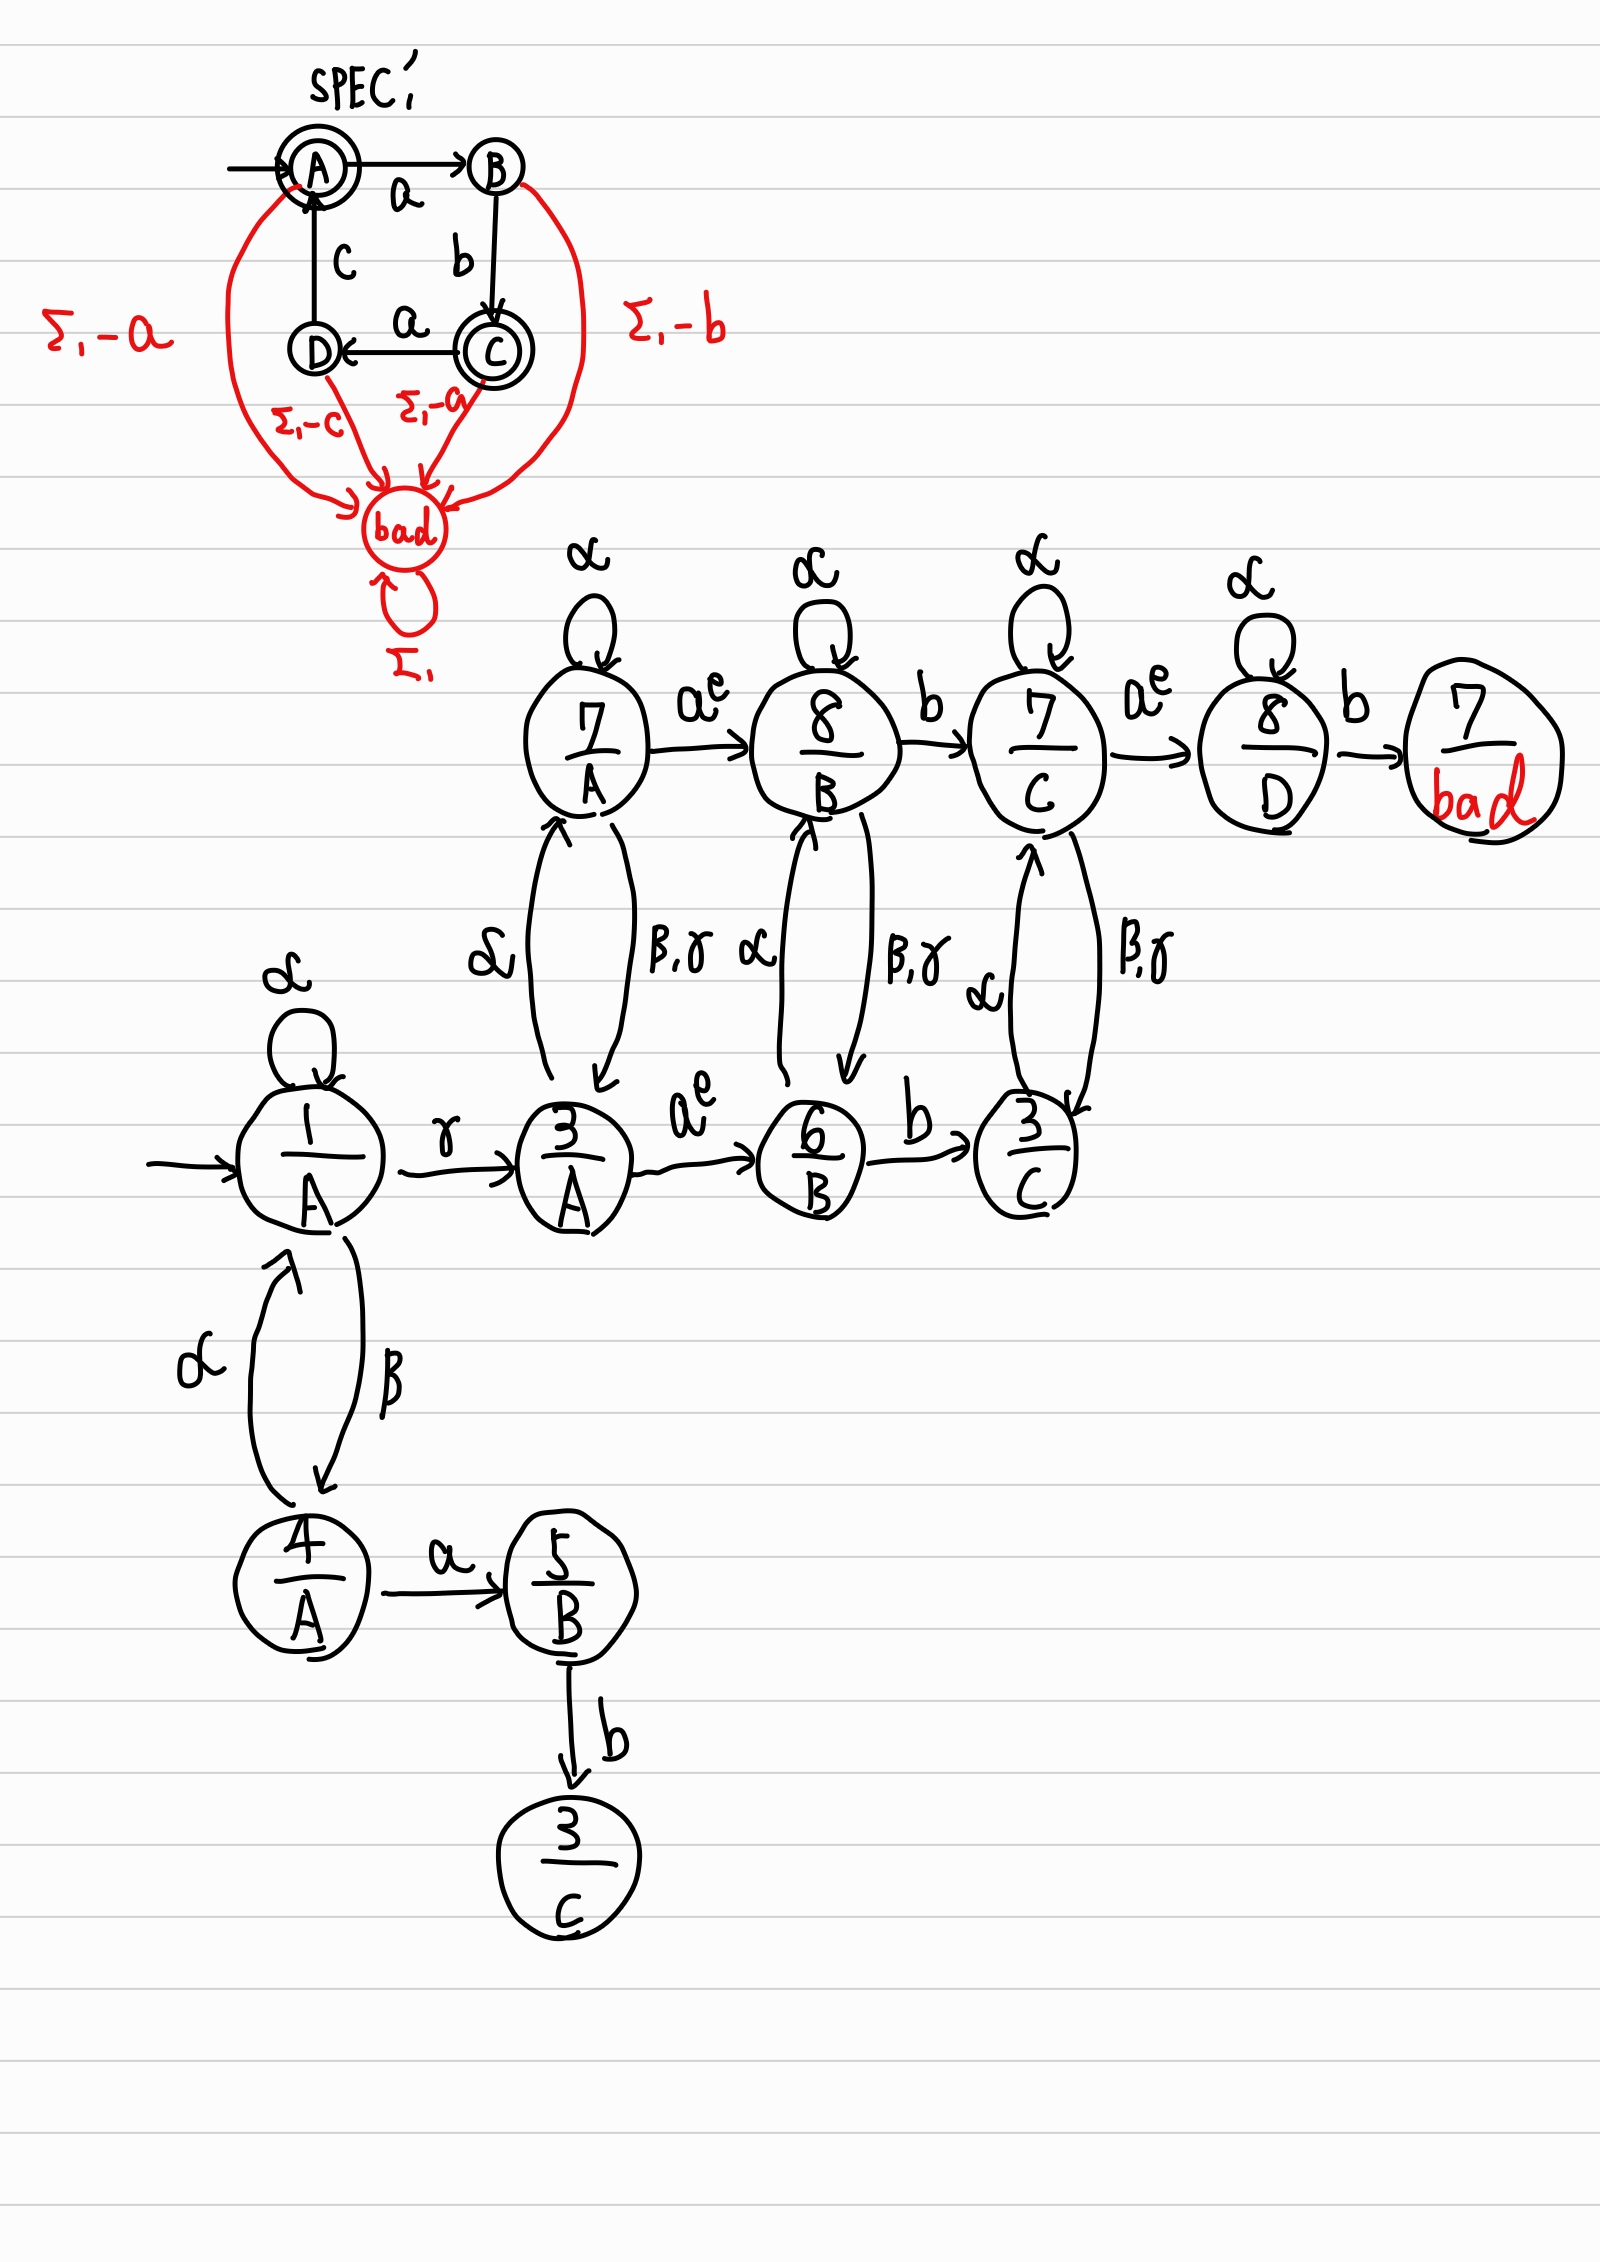 SPEC₁'
A a B
c b
Σ₁-a D a C Σ₁-b
Σ₁-c Σ₁-a
bad
Σ₁
α α α α
7/A aᵉ 8/B b 7/C aᵉ 8/D b 7/bad
α β,γ α β,γ α β,γ
α
1/A γ 3/A aᵉ 6/B b 3/C
α β
4/A a 5/B
b
3/C